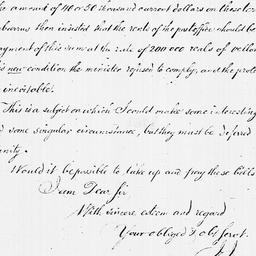 the amount of 40 or 50 thousand current dollars on these ter
then insisted that the rents of the post office should be
payment of this sum at the rate of 200.000 reals of vellon
is new condition the minister refused to comply, and the prote
inevitable.
This is a subject on which I could make some interesting
d some singular circumstances, but they must be deferred
unity.
Would it be possible to take up and pay these bills
I am Dear Sir
With sincere esteem and regard
Your obliged & obt Servt.